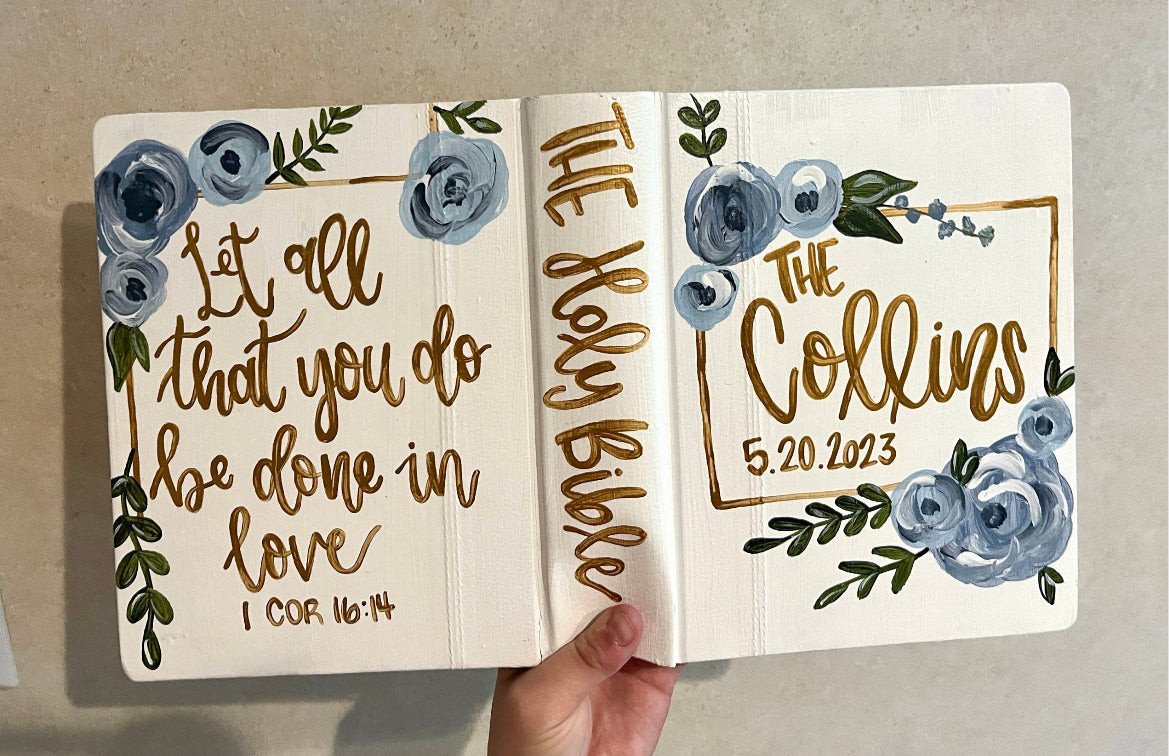 Let all
that you do
be done in
love
1 COR 16:14
THE Holy Bible
THE
Collins
5.20.2023